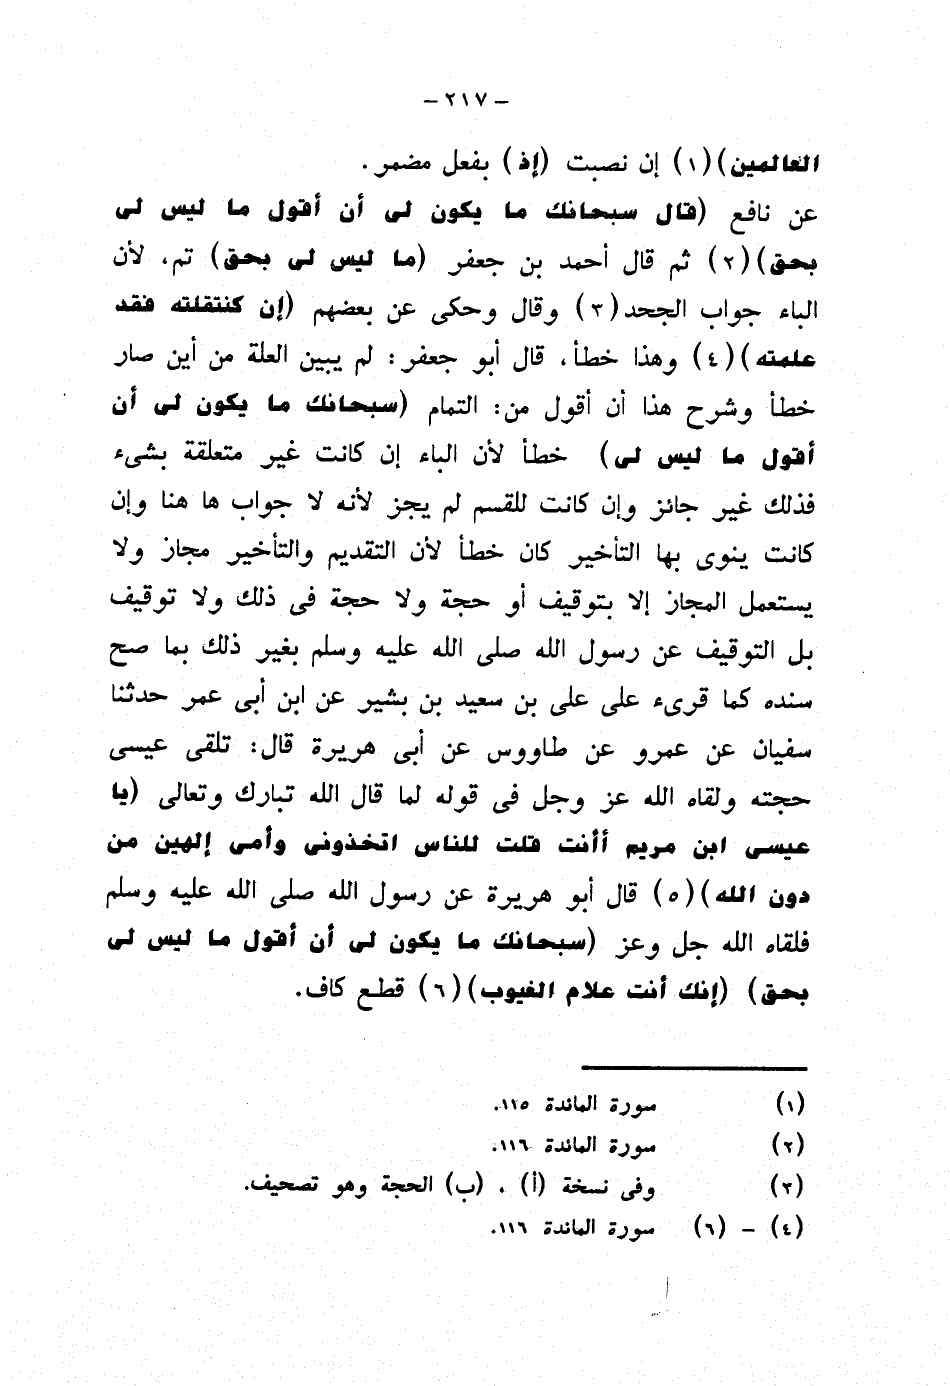 – ٢١٧ –
العالمين)(١) إن نصبت (إذ) بفعل مضمر.
عن نافع (قال سبحانك ما يكون لى أن أقول ما ليس لى
بحق)(٢) ثم قال أحمد بن جعفر (ما ليس لى بحق) تم، لأن
الباء جواب الجحد(٣) وقال وحكى عن بعضهم (إن كنتقلته فقد
علمته)(٤) وهذا خطأ، قال أبو جعفر: لم يبين العلة من أين صار
خطأ وشرح هذا أن أقول من: التمام (سبحانك ما يكون لى أن
أقول ما ليس لى) خطأ لأن الباء إن كانت غير متعلقة بشىء
فذلك غير جائز وإن كانت للقسم لم يجز لأنه لا جواب ها هنا وإن
كانت ينوى بها التأخير كان خطأ لأن التقديم والتأخير مجاز ولا
يستعمل المجاز إلا بتوقيف أو حجة ولا حجة فى ذلك ولا توقيف
بل التوقيف عن رسول الله صلى الله عليه وسلم بغير ذلك بما صح
سنده كما قرىء على على بن سعيد بن بشير عن ابن أبى عمر حدثنا
سفيان عن عمرو عن طاووس عن أبى هريرة قال: تلقى عيسى
حجته ولقاه الله عز وجل فى قوله لما قال الله تبارك وتعالى (يا
عيسى ابن مريم أأنت قلت للناس اتخذونى وأمى إلهين من
دون الله)(٥) قال أبو هريرة عن رسول الله صلى الله عليه وسلم
فلقاه الله جل وعز (سبحانك ما يكون لى أن أقول ما ليس لى
بحق) (إنك أنت علام الغيوب)(٦) قطع كاف.
(١) سورة المائدة ١١٥.
(٢) سورة المائدة ١١٦.
(٣) وفى نسخة (أ) ، (ب) الحجة وهو تصحيف.
(٤) – (٦) سورة المائدة ١١٦.